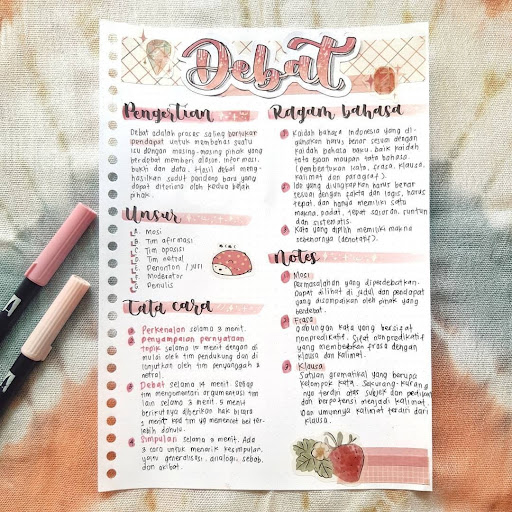 Debat
Pengertian
Debat adalah proses saling bertukar
pendapat untuk membahas suatu
isu dengan masing-masing pihak yang
berdebat memberi alasan, informasi,
bukti dan data. Hasil debat meng-
hasilkan sudut pandang baru yang
dapat diterima oleh kedua belah
pihak.
Unsur
A. Mosi
B. Tim afirmasi
C. Tim oposisi
D. Tim netral
E. Penonton / juri
F. Moderator
G. Penulis
Tata cara
1 Perkenalan selama 3 menit.
2 Penyampaian pernyataan
topik selama 15 menit dengan di
mulai oleh tim pendukung dan di
lanjutkan oleh tim penyanggah &
netral.
3 Debat selama 14 menit. Setiap
tim mengomentari argumentasi tim
lain selama 3 menit. 5 menit
berikutnya diberikan hak bicara
3 menit kpd tim yg mencatat bel ter-
lebih dahulu.
4 Simpulan selama 9 menit. Ada
3 cara untuk menarik kesimpulan,
yaitu generalisasi, analogi, sebab,
dan akibat.
Ragam bahasa
1 Kaidah bahasa Indonesia yang di-
gunakan harus benar sesuai dengan
kaidah bahasa baku, baik kaidah
tata ejaan maupun tata bahasa.
(pembentukan kata, frasa, klausa,
kalimat dan paragraf).
2 Ide yang diungkapkan harus benar
sesuai dengan fakta dan logis, harus
tepat, dan hanya memiliki satu
makna, padat, tepat sasaran, runtun
dan sistematis.
3 Kata yang dipilih memiliki makna
sebenarnya (denotatif).
Notes
1 Mosi
Permasalahan yang diperdebatkan.
Dapat dilihat di judul dan pendapat
yang disampaikan oleh pihak yang
berdebat.
2 Frasa
Gabungan kata yang bersifat
nonpredikatif. Sifat nonpredikatif
yang membedakan frasa dengan
klausa dan kalimat.
3 Klausa
Satuan gramatikal yang berupa
kelompok kata. Sekurang-kurang
nya terdiri atas subjek dan predikat
dan berpotensi menjadi kalimat.
Dan umumnya kalimat terdiri dari
klausa.